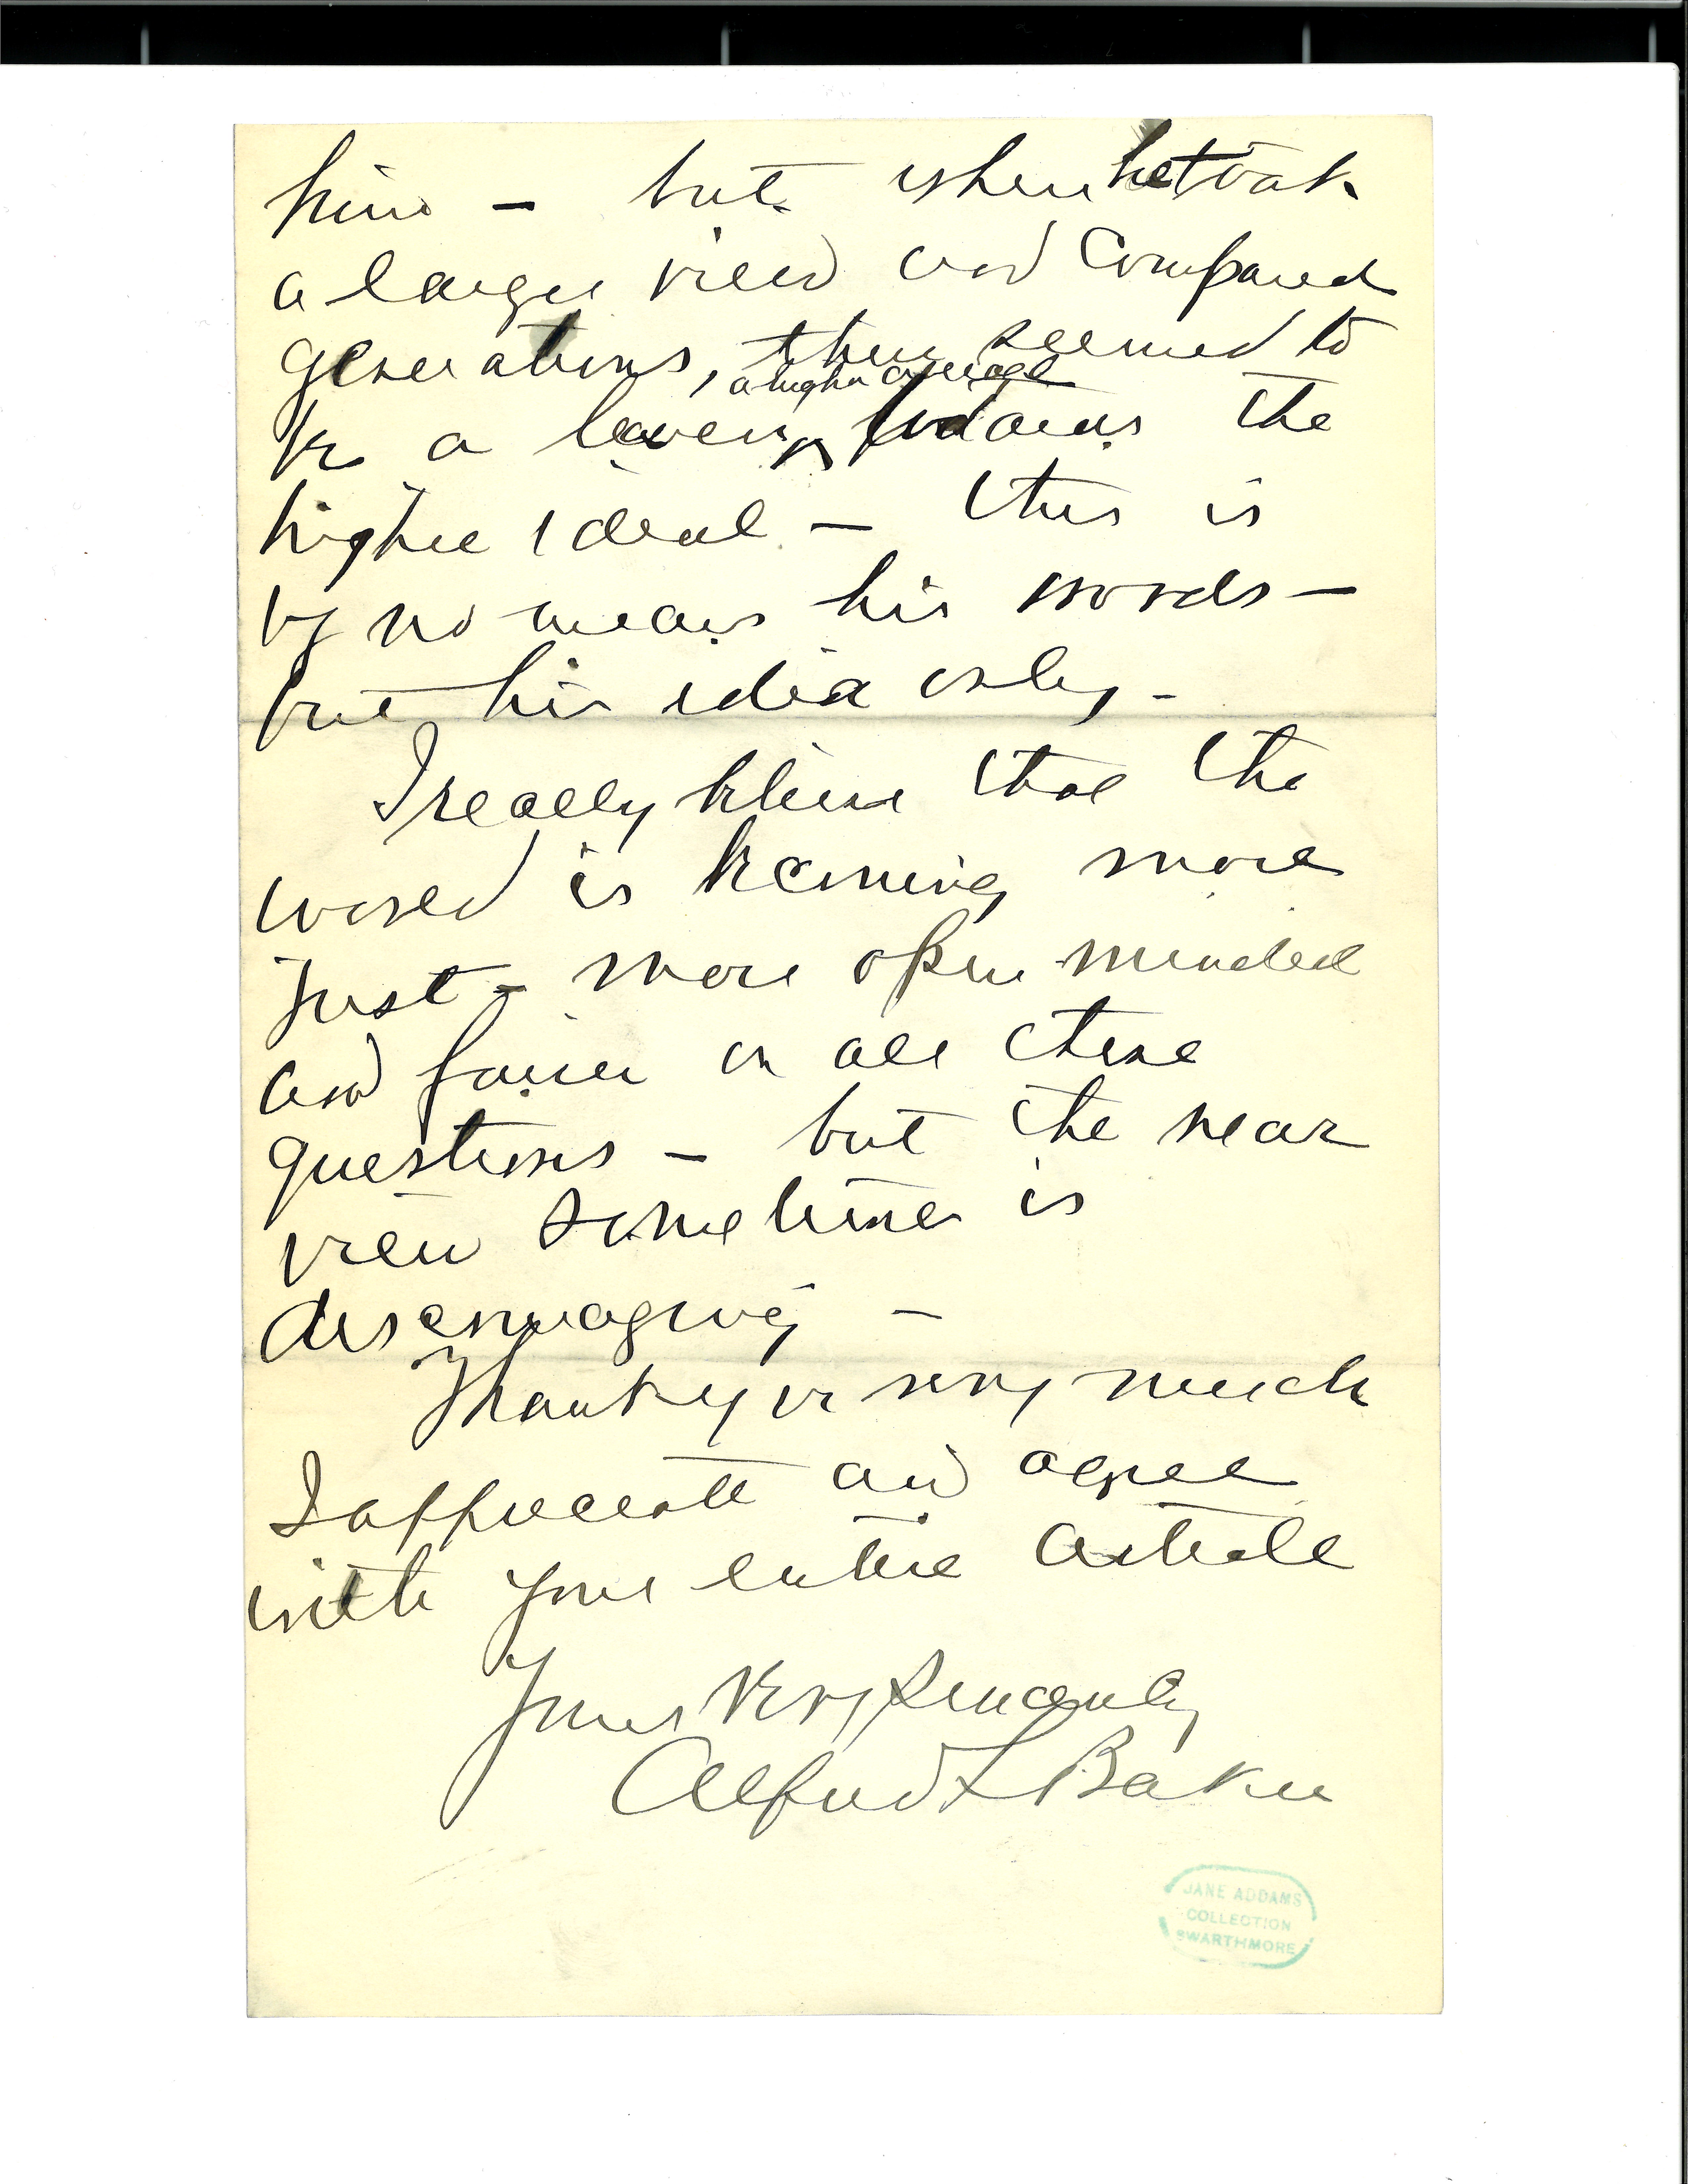 him - but when he took
a larger view and compared
generations, there seemed to
a higher average
be a leaven, towards the
higher ideal - This is
by no means his words -
but his idea only -
I really believe that the
world is becoming more
just - more open minded
and fairer on all these
questions - but the near
view sometimes is
discouraging -
Thank you very much
I appreciate and agree
with your entire article
Yours very sincerely
Alfred L Baker
JANE ADDAMS
COLLECTION
SWARTHMORE